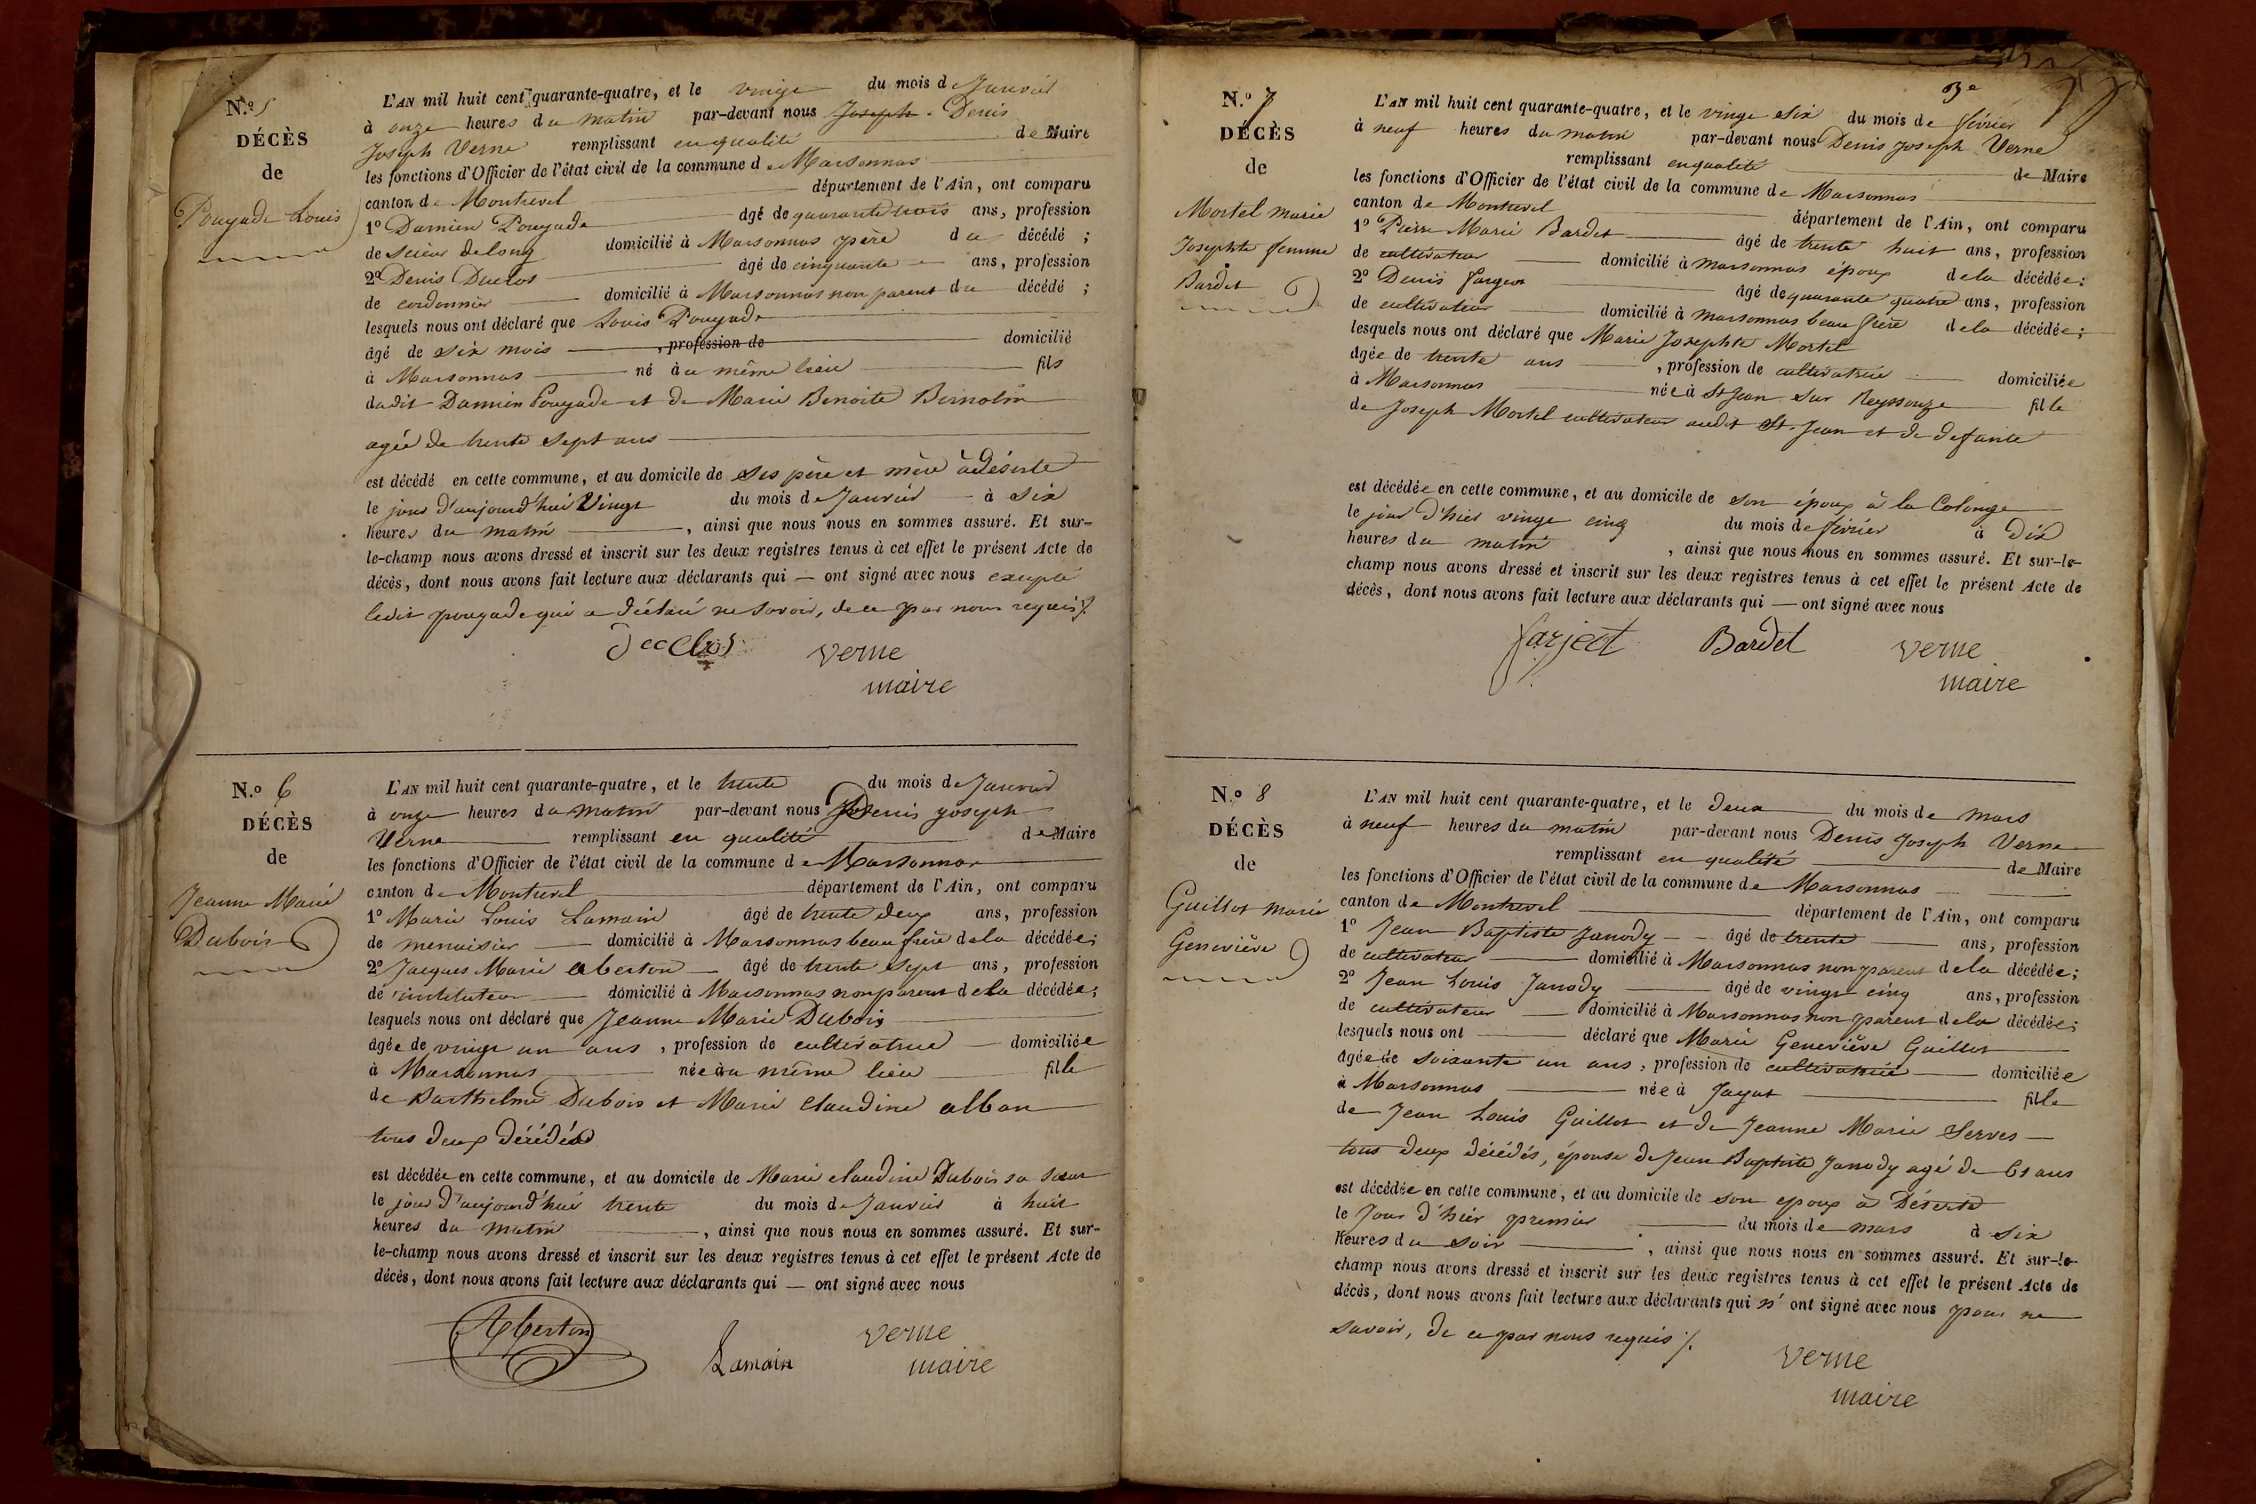 N.º 5
DÉCÈS
de
Pougade Louis
L'AN mil huit cent quarante-quatre, et le vingt du mois de Janvier
à onze heures du matin par-devant nous Joseph Denis
Joseph Verne remplissant en qualité de Maire
les fonctions d'Officier de l'état civil de la commune de Marsonnas
canton de Montrevel département de l'Ain, ont comparu
1º Damien Pougade âgé de quarante trois ans, profession
de scieur de long domicilié à Marsonnas père du décédé ;
2º Denis Duclos âgé de cinquante ans, profession
de cordonnier domicilié à Marsonnas non parent du décédé ;
lesquels nous ont déclaré que Louis Pougade
âgé de six mois , profession de domicilié
à Marsonnas né au même lieu fils
dudit Damien Pougade et de Marie Benoite
agée de trente sept ans
est décédé en cette commune, et au domicile de ses père et mère à Déserte
le jour d'aujourd'hui Vingt du mois de Janvier à six
heures du matin , ainsi que nous nous en sommes assuré. Et sur-
le-champ nous avons dressé et inscrit sur les deux registres tenus à cet effet le présent Acte de
décès, dont nous avons fait lecture aux déclarants qui — ont signé avec nous excepté
ledit pougade qui a déclaré ne savoir, de ce par nous requis ./.
Duclos verne
maire
N.º 6
DÉCÈS
de
Jeanne Marie
Dubois
L'AN mil huit cent quarante-quatre, et le trente du mois de Janvier
à onze heures du matin par-devant nous Denis joseph
Verne remplissant en qualité de Maire
les fonctions d'Officier de l'état civil de la commune de Marsonnas
canton de Montrevel département de l'Ain, ont comparu
1º Marie Louis Lamain âgé de trente deux ans, profession
de menuisier domicilié à Marsonnas beau frère de la décédée;
2º Jacques Marie Aberton âgé de trente sept ans, profession
de instituteur domicilié à Marsonnas non parent de la décédée;
lesquels nous ont déclaré que Jeanne Marie Dubois
âgée de vingt un ans , profession de cultivatrice domiciliée
à Marsonnas née au même lieu fille
de Barthelmé Dubois et Marie Claudine alban
tous deux décédés
est décédée en cette commune, et au domicile de Marie claudine Dubois sa sœur
le jour d'aujourd'hui trente du mois de Janvier à huit
heures du matin , ainsi que nous nous en sommes assuré. Et sur-
le-champ nous avons dressé et inscrit sur les deux registres tenus à cet effet le présent Acte de
décès, dont nous avons fait lecture aux déclarants qui — ont signé avec nous
Aberton Lamain verne
maire
3e
N.º 7
DÉCÈS
de
Mortel marie
Josephte femme
Bardet
L'AN mil huit cent quarante-quatre, et le vingt six du mois de février
à neuf heures du matin par-devant nous Denis joseph Verne
remplissant en qualité de Maire
les fonctions d'Officier de l'état civil de la commune de Marsonnas
canton de Montrevel département de l'Ain, ont comparu
1º Pierre Marie Bardet âgé de trente huit ans, profession
de cultivateur domicilié à marsonnas époux de la décédée;
2º Denis farjeot âgé de quarante quatre ans, profession
de cultivateur domicilié à marsonnas beau frère de la décédée;
lesquels nous ont déclaré que Marie Josephte Mortel
âgée de trente ans , profession de cultivatrice domiciliée
à Marsonnas née à St Jean sur Reyssouze fille
de Joseph Mortel cultivateur audit St Jean et de defunte
est décédée en cette commune, et au domicile de son époux à la Colonge
le jour d'hier vingt cinq du mois de février à dix
heures du matin , ainsi que nous nous en sommes assuré. Et sur-le-
champ nous avons dressé et inscrit sur les deux registres tenus à cet effet le présent Acte de
décès, dont nous avons fait lecture aux déclarants qui — ont signé avec nous
farjeot Bardet verne
maire
N.º 8
DÉCÈS
de
Guillot marie
Geneviève
L'AN mil huit cent quarante-quatre, et le deux du mois de mars
à neuf heures du matin par-devant nous Denis Joseph Verne
remplissant en qualité de Maire
les fonctions d'Officier de l'état civil de la commune de Marsonnas
canton de Montrevel département de l'Ain, ont comparu
1º Jean Baptiste Janody âgé de trente ans, profession
de cultivateur domicilié à Marsonnas non parent de la décédée;
2º Jean Louis Janody âgé de vingt cinq ans, profession
de cultivateur domicilié à Marsonnas non parent de la décédée;
lesquels nous ont déclaré que Marie Geneviève Guillot
âgée de soixante un ans, profession de cultivatrice domiciliée
à Marsonnas née à Jayat fille
de Jean Louis Guillot et de Jeanne Marie Serves
tous deux décédés, épouse de Jean Baptiste Janody agé de 61 ans
est décédée en cette commune, et au domicile de son epoux à Déserte
le Jour d'hier premier du mois de mars à six
heures du soir , ainsi que nous nous en sommes assuré. Et sur-le-
champ nous avons dressé et inscrit sur les deux registres tenus à cet effet le présent Acte de
décès, dont nous avons fait lecture aux déclarants qui n' ont signé avec nous pour ne
savoir, de ce par nous requis ./.
verne
maire